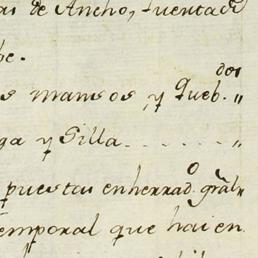 as de Ancho, fuentad
be.
s mansos, y Queb.dos "
ga y Silla "
puestas en herrad.o gral
temporal que hai en